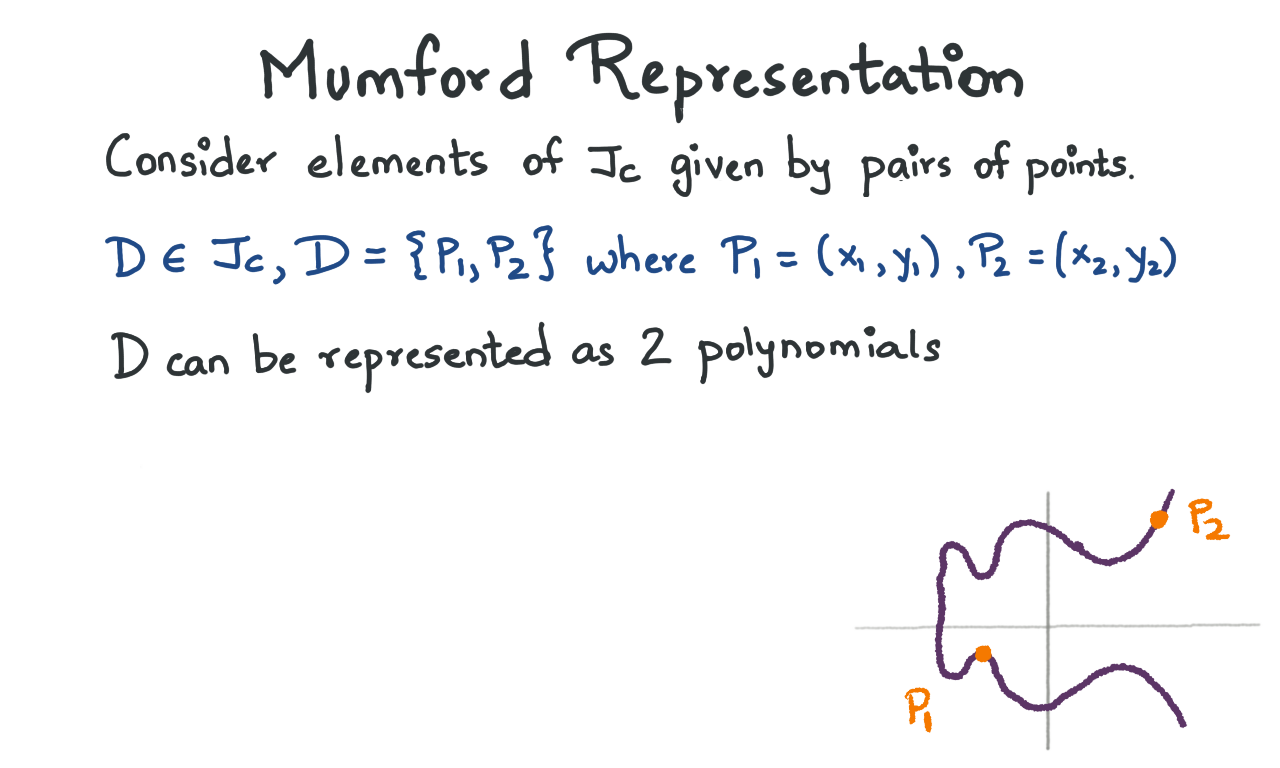 Mumford Representation
Consider elements of J_C given by pairs of points.
D ∈ J_C, D = {P₁, P₂} where P₁ = (x₁, y₁), P₂ = (x₂, y₂)
D can be represented as 2 polynomials
P₂
P₁